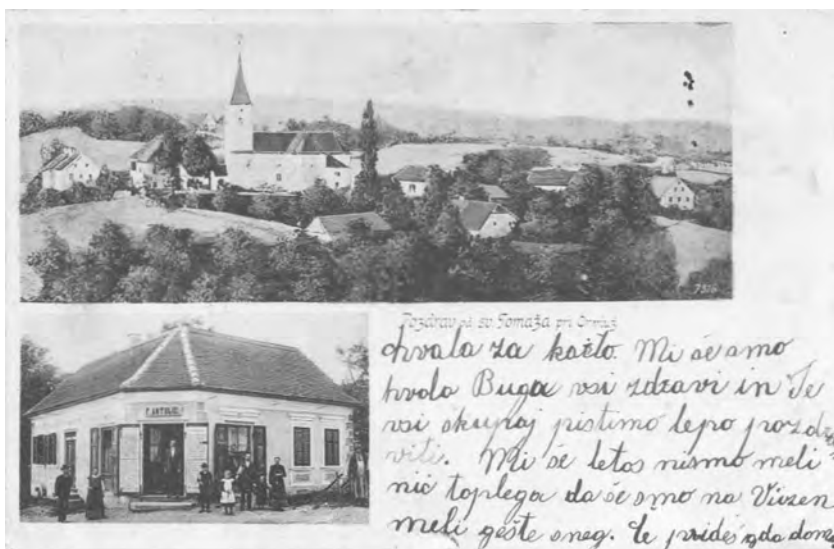 7316
Pozdrav od sv. Tomaža pri Ormuž
F. ANTOLIČ
chvala za kaŕto. Mi še smo
hvala Buga vsi zdravi in Te
vsi skupaj pistimo lepo pozdra
viti. Mi še letos nismo meli
nič toplega da še smo na Vüzen
meli gešte sneg. če prideš gda domo